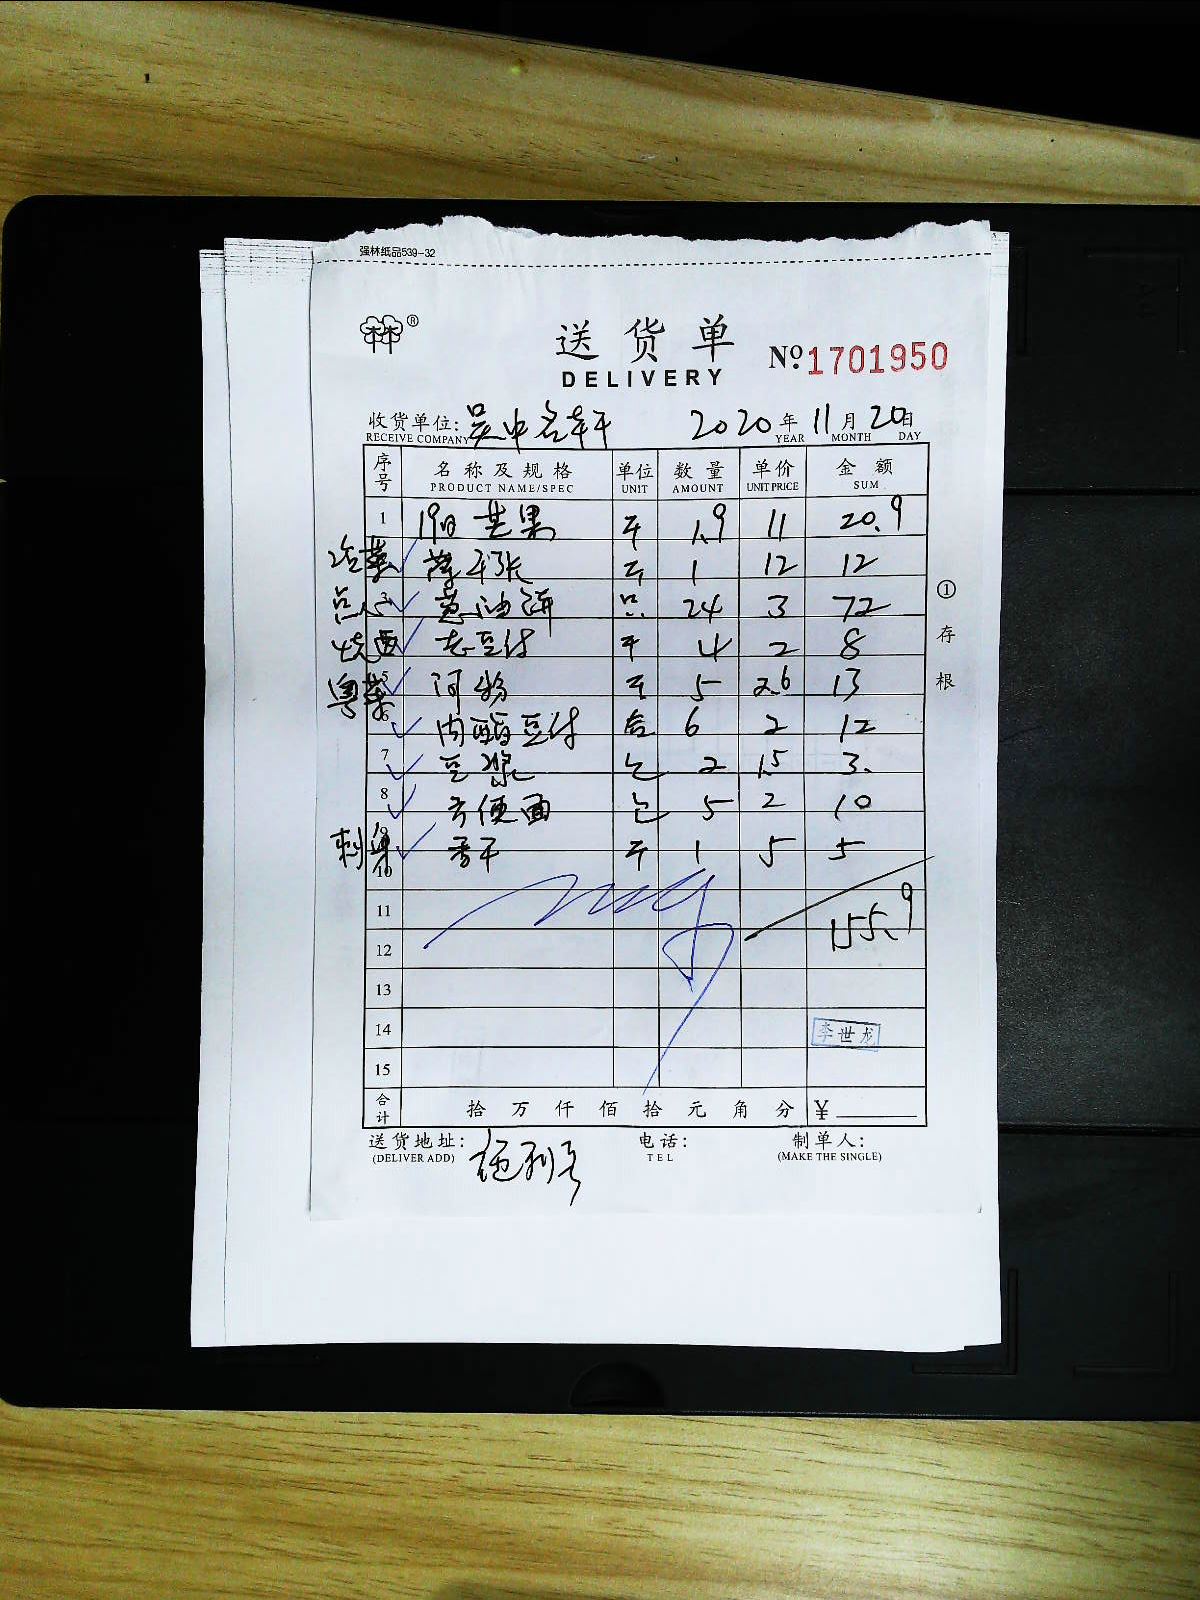 强林纸品539-32
林林®
送货单
DELIVERY
Nº 1701950
收货单位: 吴中名轩 2020年11月20日
RECEIVE COMPANY YEAR MONTH DAY
序号 名称及规格 单位 数量 单价 金额
PRODUCT NAME/SPEC UNIT AMOUNT UNIT PRICE SUM
1 19日 芒果 斤 1.9 11 20.9
冷菜 薄千张 斤 1 12 12
点心 3 葱油饼 只 24 3 72
烧腊 老豆付 斤 4 2 8
粤菜 5 河粉 斤 5 2.6 13
6 内酯豆付 合 6 2 12
7 豆浆 包 2 1.5 3.
8 方便面 包 5 2 10
刺身 9 香干 斤 1 5 5
10
11
155.9
12
13
14 李世龙
15
合计 拾 万 仟 佰 拾 元 角 分 ¥
送货地址: 电话: 制单人:
(DELIVER ADD) TEL (MAKE THE SINGLE)
①存根